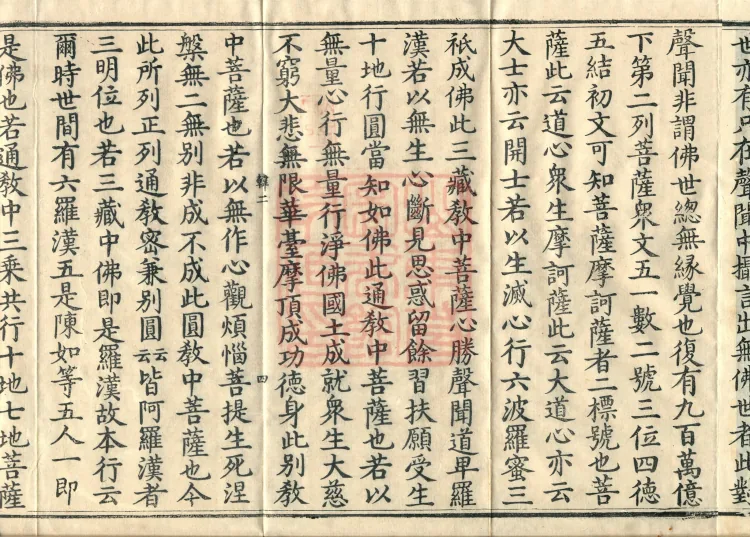 世亦有只在聲聞中攝言出無佛世者此對
聲聞非謂佛世總無緣覺也復有九百萬億
下第二列菩薩衆文五一數二號三位四德
五結初文可知菩薩摩訶薩者二標號也菩
薩此云道心衆生摩訶薩此云大道心亦云
大士亦云開士若以生滅心行六波羅蜜三
祇成佛此三藏教中菩薩心勝聲聞道卑羅
漢若以無生心斷見思惑留餘習扶願受生
十地行圓當知如佛此通教中菩薩也若以
無量心行無量行淨佛國土成就衆生大慈
不窮大悲無限華臺摩頂成功德身此別教
韓二 四
中菩薩也若以無作心觀煩惱菩提生死涅
槃無二無別非成不成此圓教中菩薩也今
此所列正列通教密兼別圓云云皆阿羅漢者
三明位也若三藏中佛即是羅漢故本行云
爾時世間有六羅漢五是陳如等五人一即
是佛也若通教中三乘共行十地七地菩薩